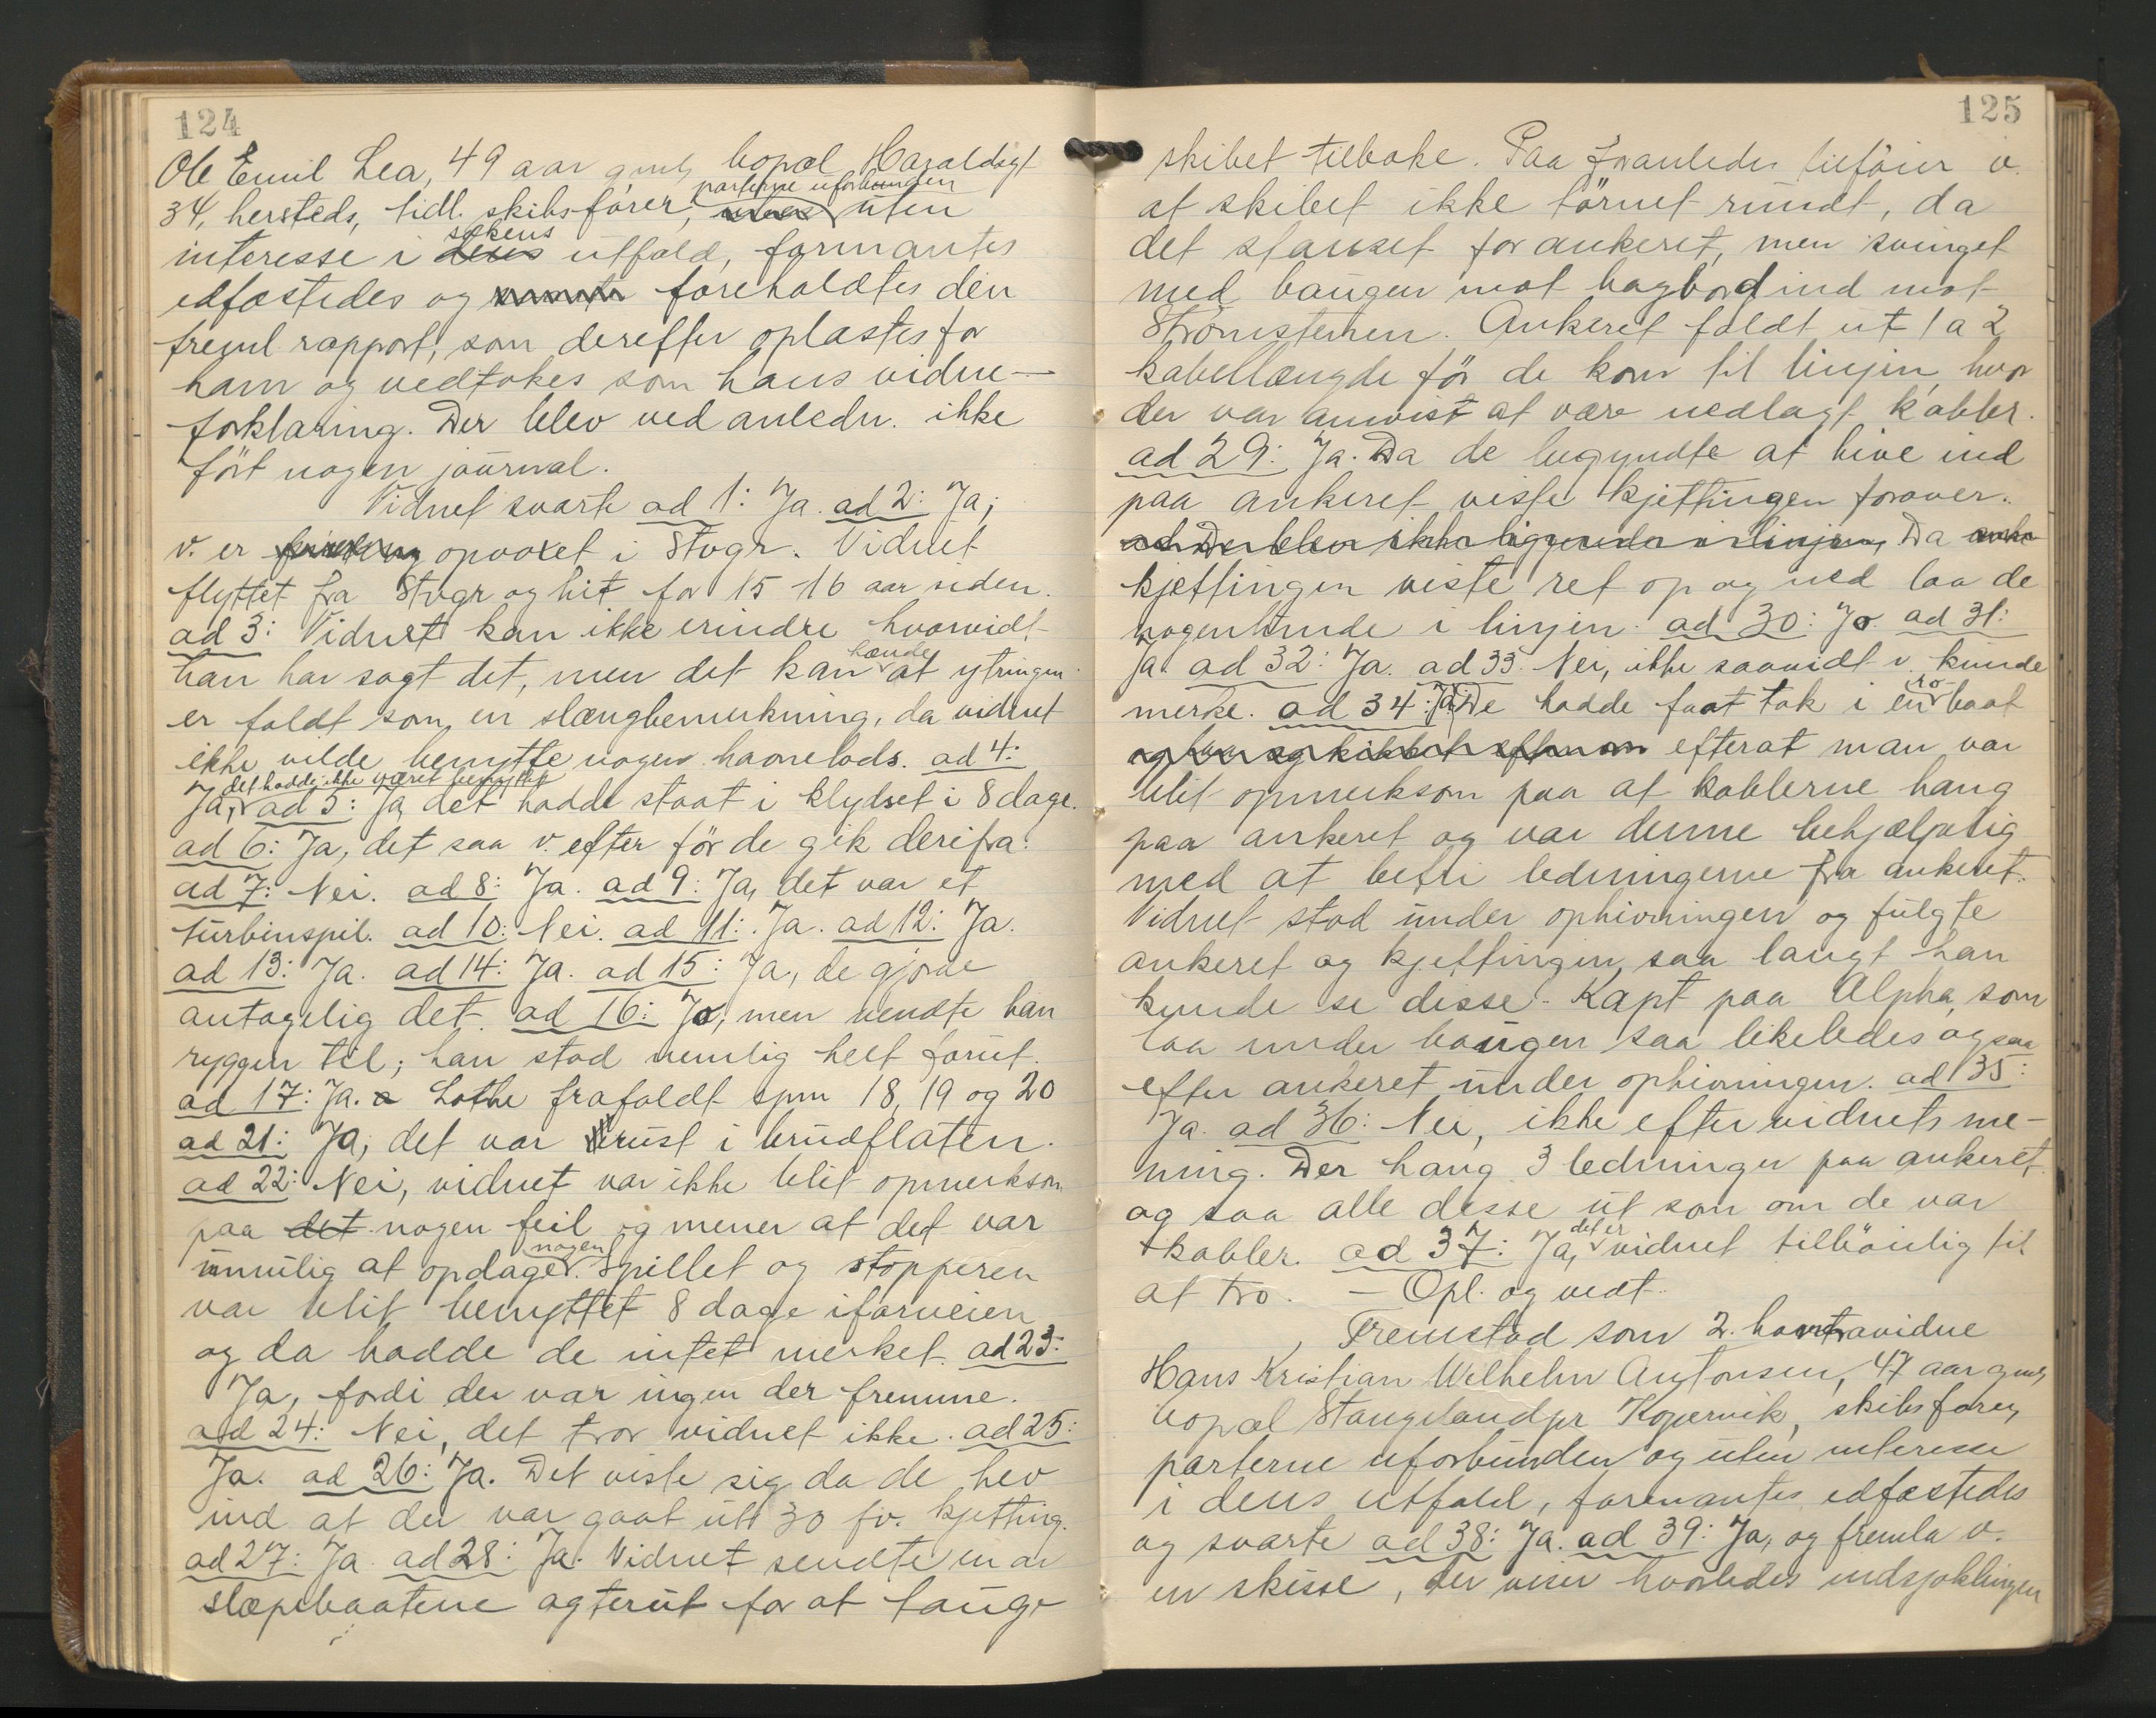 124
Ole Emil Lea, 49 aar gml, bopæl Haraldsgt
34, hersteds, tidl. skibsfører, parterne uforbunden uten
interesse i sakens utfald, formantes
edfæstedes og foreholdtes den
freml rapport, som derefter oplæstes for
ham og vedtokes som hans vidne-
forklaring. Der blev ved anledn. ikke
ført nogen journal.
Vidnet svarte ad 1: Ja. ad 2: Ja;
v. er opvoxet i Stvgr. Vidnet
flyttet fra Stvgr og hit for 15 16 aar siden.
ad 3: Vidnet kan ikke erindre hvorvidt
han har sagt det, men det kan hænde at ytringen
er faldt som en slængbemerkning, da vidnet
ikke vilde benytte nogen havnelods. ad 4:
Ja, det hadde ikke været benyttet ad 5: Ja, det hadde staat i klydset i 8 dage.
ad 6: Ja, det saa v. efter før de gik derifra.
ad 7: Nei. ad 8: Ja. ad 9: Ja, det var et
turbinspil. ad 10: Nei. ad 11: Ja. ad 12: Ja.
ad 13: Ja. ad 14: Ja. ad 15: Ja, de gjorde
antagelig det. ad 16: Ja, men vendte han
ryggen til; han stod nemlig helt forut.
ad 17: Ja. Lothe frafaldt spm 18, 19 og 20
ad 21: Ja, det var rust i brudflaten.
ad 22: Nei, vidnet var ikke blit opmerksom
paa det nogen feil og mener at det var
umulig at opdage nogen. Spillet og stopperen
var blit benyttet 8 dage iforveien
og da hadde de intet merket. ad 23:
Ja, fordi der var ingen der fremme.
ad 24: Nei, det tror vidnet ikke. ad 25:
Ja. ad 26: Ja. Det viste sig da de hev
ind at der var gaat ut 30 fv. kjetting.
ad 27: Ja. ad 28: Ja. Vidnet sendte en av
slæpebaatene agterut for at tauge
125
skibet tilbake. Paa foranledn tilføier v.
at skibet ikke tørnet rundt, da
det stanset for ankeret, men svinget
med baugen mot bagbord ind mot
Strømstenen. Ankeret faldt ut 1 a 2
kabellængde før de kom til linjen, hvor
der var anvist at være nedlagt kabler.
ad 29: Ja. Da de begyndte at hive ind
paa ankeret viste kjettingen forover.
ad Der blev ikke liggende i linjen, Da anke
kjettingen viste ret op og ned laa de
nogenlunde i linjen. ad 30: Ja. ad 31:
Ja. ad 32: Ja. ad 33. Nei, ikke saavidt v. kunde
merke. ad 34: Ja. De hadde faat tak i en ro baat
efterat man var
blit opmerksom paa at kablerne hang
paa ankeret og var denne behjælpelig
med at befri ledningerne fra ankeret.
Vidnet stod under ophivningen og fulgte
ankeret og kjettingen saa langt han
kunde se disse. Kapt paa Alpha, som
laa under baugen saa likeledes ogsaa
efter ankeret under ophivningen. ad 35:
Ja. ad 36: Nei, ikke efter vidnets me-
ning. Der hang 3 ledninger paa ankeret,
og saa alle disse ut som om de var
kabler. ad 37: Ja, det er vidnet tilbøielig til
at tro. – Opl. og vedt.
Fremstod som 2. kontravidne
Hans Kristian Wilhelm Antonsen, 47 aar gml,
bopæl Stangelandpr Kopervik, skibsfører,
parterne uforbunden og uten interesse
i dens utfald, formantes edfæstedes
og svarte ad 38: Ja. ad 39: Ja, og fremla v.
en skisse, der viser hvorledes indsjoklingen